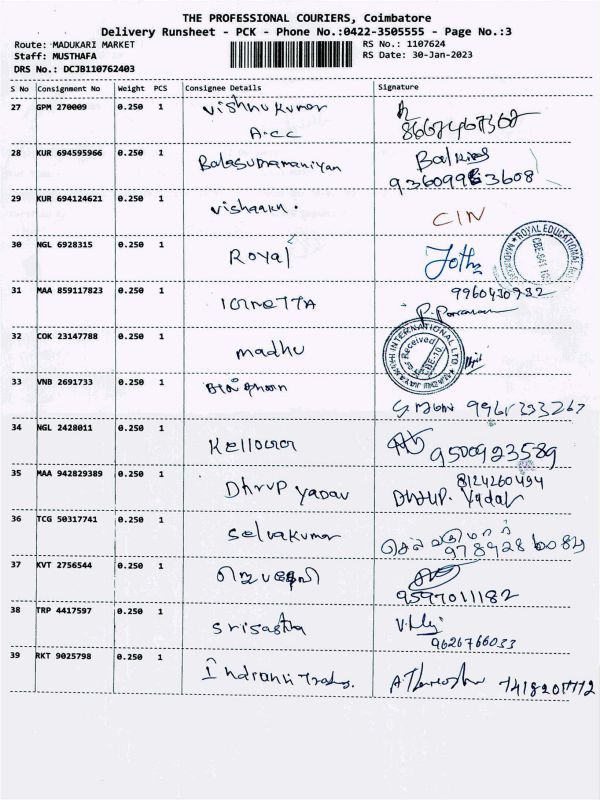 THE PROFESSIONAL COURIERS, Coimbatore
Delivery Runsheet - PCK - Phone No.:0422-3505555 - Page No.:3
Route: MADUKARI MARKET
RS No.: 1107624
Staff: MUSTHAFA
RS Date: 30-Jan-2023
DRS No.: DCJB110762403
S No Consignment No Weight PCS Consignee Details Signature
27 GPM 270009 0.250 1 Vishnu Kumar
A.CC
28 KUR 694595966 0.250 1 Balasubramaniyan
29 KUR 694124621 0.250 1 Vishaanu. CIN
30 NGL 6928315 0.250 1 Royal Jothi
ROYAL EDUCATIONAL
31 MAA 859117823 0.250 1
32 COK 23147788 0.250 1 madhu
INTERNATIONAL LTD
Received
33 VNB 2691733 0.250 1
34 NGL 2428011 0.250 1
9500923589
35 MAA 942829389 0.250 1 Dhrup Yadav 8124260494
Dhrup. Yadav
36 TCG 50317741 0.250 1 Selvakumar செல்வகுமார்
37 KVT 2756544 0.250 1
9597011182
38 TRP 4417597 0.250 1 Srisastha
9626766033
39 RKT 9025798 0.250 1 Indranni